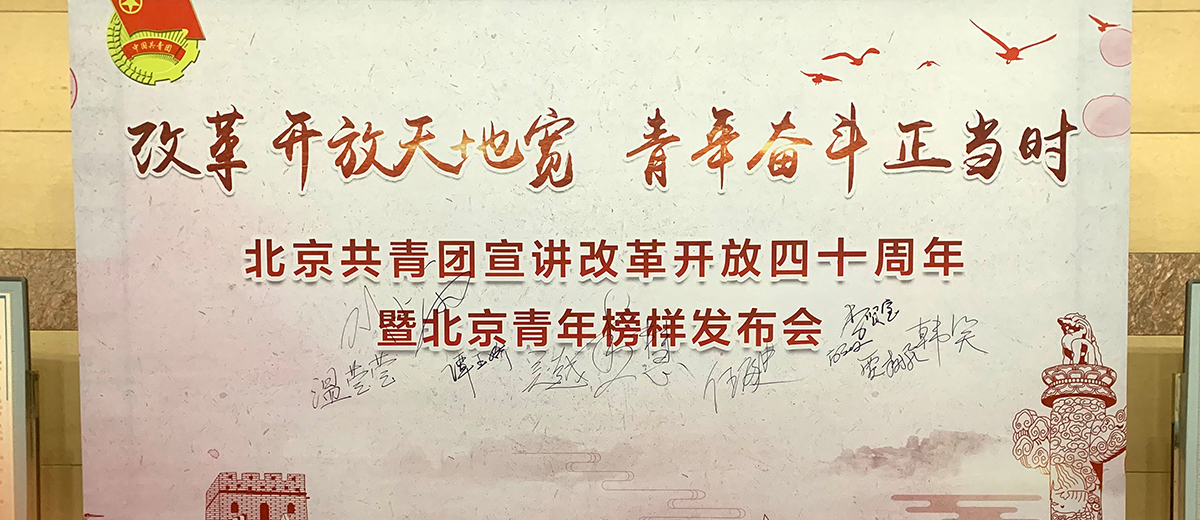 中国共青团
改革开放天地宽 青年奋斗正当时
北京共青团宣讲改革开放四十周年
暨北京青年榜样发布会
温莹莹
韩笑